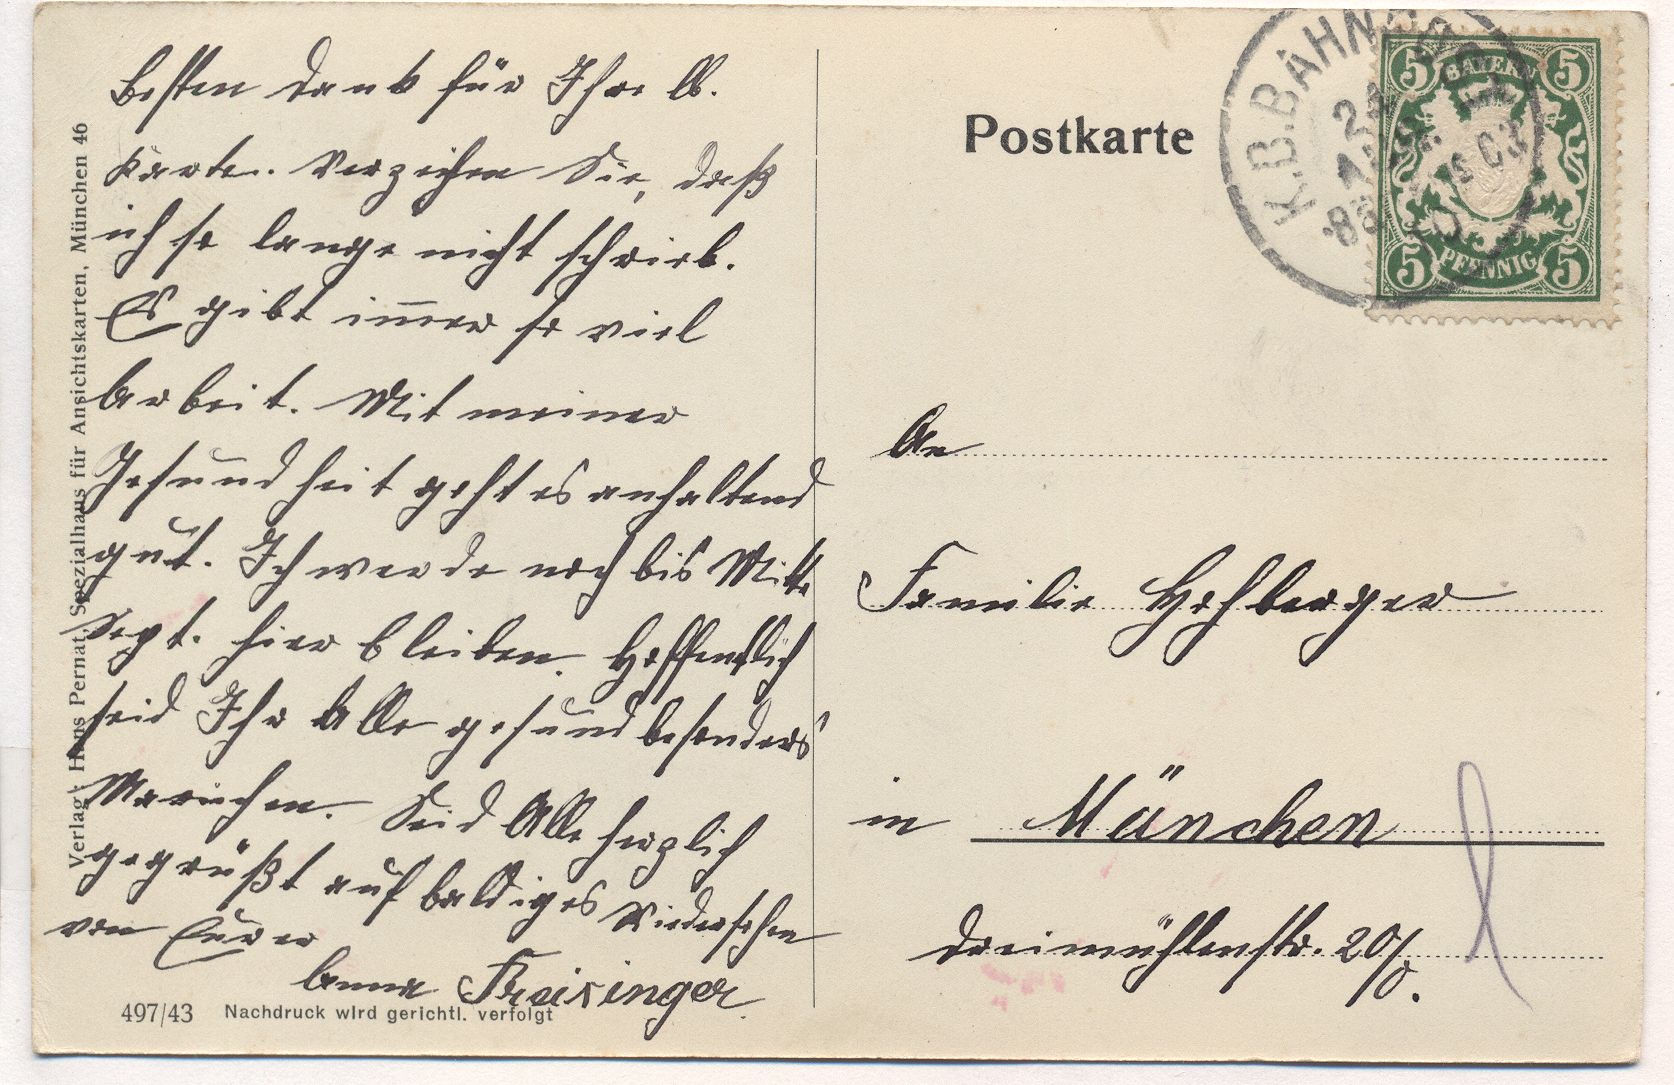 Besten Dank für Ihre lb.
Karte. Verzeihen Sie, daß
ich so lange nicht schrieb.
Es gibt im̅er so viel
Arbeit. Mit meiner
Gesundheit geht es anhaltend
gut. Ich werde noch bis Mitte
Sept. hier bleiben. Hoffentlich
seid Ihr Alle gesund besonders
Mariechen. Seid Alle herzlich
gegrüßt auf baldiges Wiedersehen
von Eurer
Anna Freisinger
Verlag: Hans Pernat, Spezialhaus für Ansichtskarten, München 46
497/43 Nachdruck wird gerichtl. verfolgt
Postkarte
K.B.BAHNPOST
5 BAYERN 5
5 PFENNIG 5
An
Familie Hohberger
in München
Dreimühlenstr. 20/0.